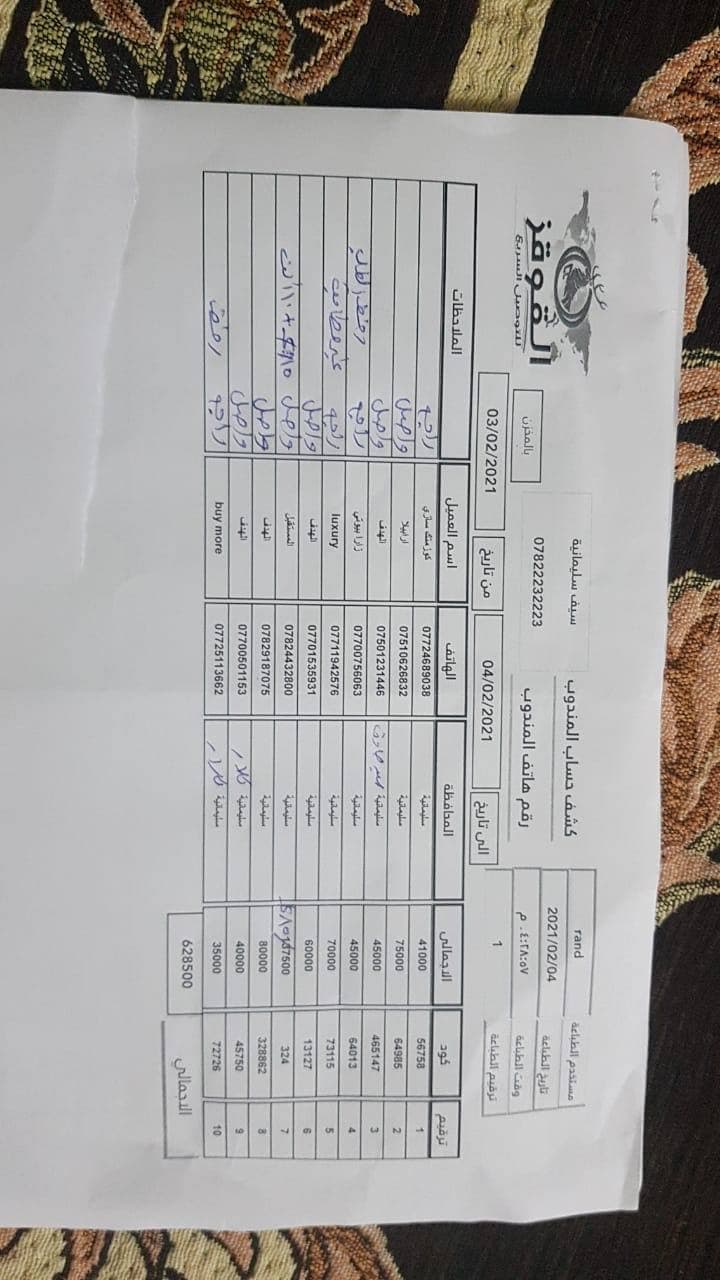 القوقز
للتوصيل السريع
كشف حساب المندوب سيف سليمانية
رقم هاتف المندوب 07822232223
بالمخزن
مستخدم الطباعة rand
تاريخ الطباعة 2021/02/04
وقت الطباعة ٠٤:٢٨:٥٧ م
ترقيم الطباعة 1
الى تاريخ 04/02/2021 من تاريخ 03/02/2021
ترقيم كود الاجمالى المحافظة الهاتف اسم العميل الملاحظات
1 56758 41000 سليمانية 07724689038 كوزمتك سازي راجع
2 64985 75000 سليمانية 07510626832 ارابيلا واصل
3 465147 45000 سليمانية سيد صادق 07501231446 الهدف واصل
4 64013 45000 سليمانية 07700756063 زارا بيوتي راجع رفض الطلب
5 73115 70000 سليمانية 07711942576 luxury راجع غير مطابق
6 13127 60000 سليمانية 07701535931 الهدف واصل
7 324 137500 سليمانية 07824432800 المستقبل واصل
8 328862 80000 سليمانية 07829187075 الهدف واصل
9 45750 40000 سليمانية كلار 07700501153 الهدف واصل
10 72726 35000 سليمانية كلار 07725113662 buy more راجع رفض
الاجمالي 628500